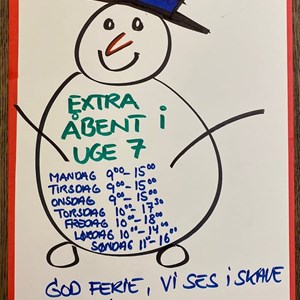 EXTRA
ÅBENT i
UGE 7
MANDAG 9⁰⁰-15⁰⁰
TIRSDAG 9⁰⁰-15⁰⁰
ONSDAG 9⁰⁰-15⁰⁰
TORSDAG 10⁰⁰-17³⁰
FREDAG 10⁰⁰-18⁰⁰
LØRDAG 10⁰⁰-14⁰⁰
SØNDAG 11⁰⁰-16⁰⁰
GOD FERIE, VI SES I SKAVE